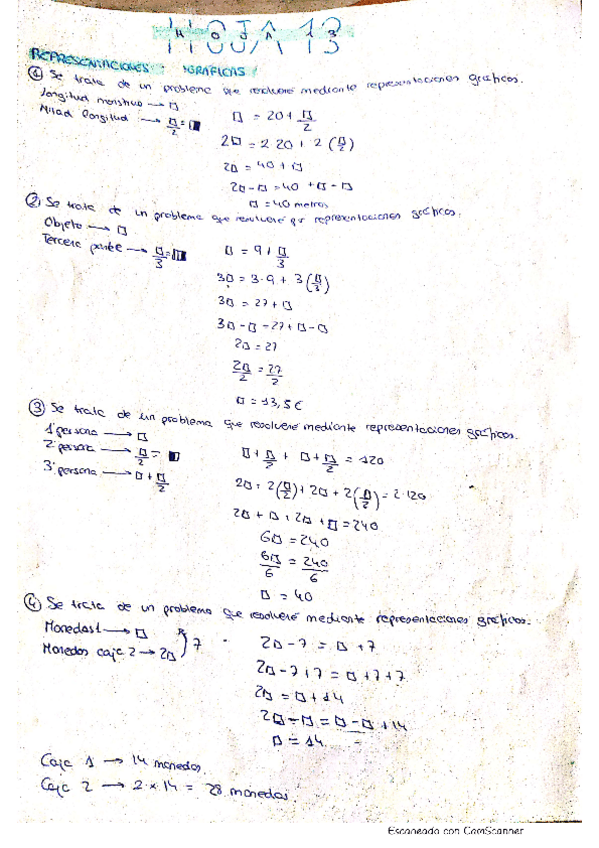 HOJA 13
REPRESENTACIONES GRÁFICAS
① Se trata de un problema que resolveré mediante representaciones gráficas.
Longitud monstruo → □
Mitad longitud → □/2 = ■
□ = 20 + □/2
2□ = 2·20 + 2(□/2)
2□ = 40 + □
2□ - □ = 40 + □ - □
□ = 40 metros
② Se trata de un problema que resolveré por representaciones gráficas.
Objeto → □
Tercera parte → □/3 = ■
□ = 9 + □/3
3□ = 3·9 + 3(□/3)
3□ = 27 + □
3□ - □ = 27 + □ - □
2□ = 27
2□/2 = 27/2
□ = 13,5 €
③ Se trata de un problema que resolveré mediante representaciones gráficas.
1ª persona → □
2ª persona → □/2 = ■
3ª persona → □ + □/2
□ + □/2 + □ + □/2 = 120
2□ + 2(□/2) + 2□ + 2(□/2) = 2·120
2□ + □ + 2□ + □ = 240
6□ = 240
6□/6 = 240/6
□ = 40
④ Se trata de un problema que resolveré mediante representaciones gráficas.
Monedas 1 → □
Monedas caja 2 → 2□ 7
2□ - 7 = □ + 7
2□ - 7 + 7 = □ + 7 + 7
2□ = □ + 14
2□ - □ = □ - □ + 14
□ = 14
Caja 1 → 14 monedas.
Caja 2 → 2 × 14 = 28 monedas.
Escaneado con CamScanner